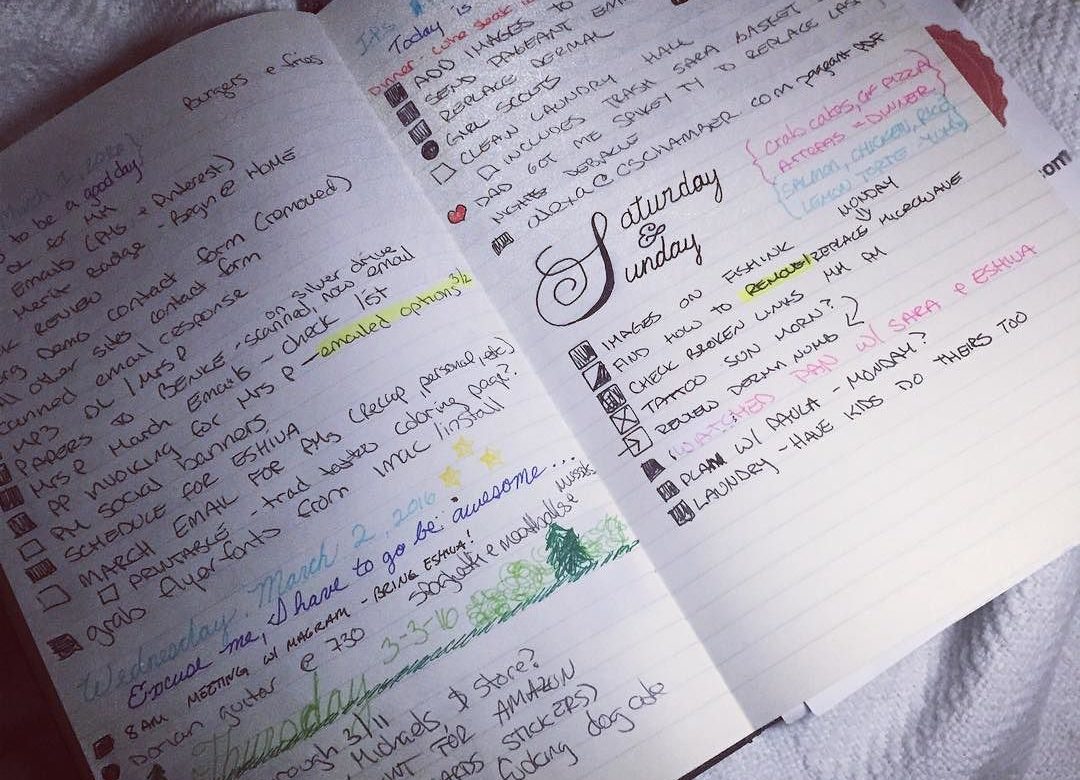 Burgers & fries
March 1, 2016
to be a good day}
DL for MH
Emails (AMs + Pinterest)
Merit Badge - Begin @ HOME
REVIEW
Demo contact form (removed)
all other sites contact form
scanned email response on silver drive
MP3 DL / Mrs P
PAPERS TO BENKE - scanned, now email
Mrs P March Emails - check list
PP INVOICING for Mrs P - emailed options 3/2
AM SOCIAL banners
SCHEDULE FOR ESHWA
MARCH EMAIL FOR AMs (recap, personal, etc)
PRINTABLE - trad tattoo coloring page?
grab flyer fonts from imac / install
Wednesday. March 2, 2016
Excuse me, I have to go be awesome...
8AM MEETING W/ MAGRAM - BRING ESHWA!
spaghetti & meatballs
Dorian guitar @ 730
Thursday 3-3-16
rough 3/11
Michaels, $ store?
FOR AMAZON
STICKERS)
fucking dog ate
Today is
Dinner:
ADD IMAGES TO
SEND PAGEANT
REPLACE DERMAL
GIRL SCOUTS
CLEAN LAUNDRY HALL
INCLUDES TRASH SARA BASKET
DAD GOT ME SPIKEY TY TO REPLACE LAST
NIGHTS DEBACLE
alexa@ccschamber.com - pageant PDF
{Crab cakes, GF PIZZA}
{ARTOPAS = DINNER}
{SALMON, CHICKEN, RICE
LEMON TORTE. YUM}
Saturday
&
Sunday
MONDAY
IMAGES ON ESHINK
FIND HOW TO REMOVE/REPLACE MICROWAVE
CHECK BROKEN LINKS MH AM
TATTOO SUN MORN?
REVIEW DERM NUMB
WATCHED PAN W/ SARA & ESHWA
PLAN W/ PAOLA - MONDAY?
LAUNDRY - HAVE KIDS DO THEIRS TOO